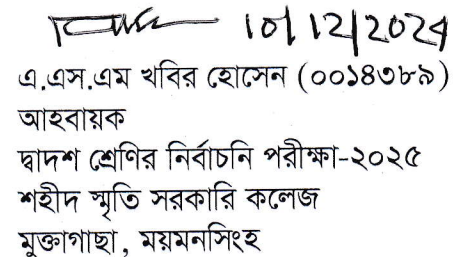 10/12/2024
এ.এস.এম খবির হোসেন (০০১৪৩৮৯)
আহবায়ক
দ্বাদশ শ্রেণির নির্বাচনি পরীক্ষা-২০২৫
শহীদ স্মৃতি সরকারি কলেজ
মুক্তাগাছা, ময়মনসিংহ